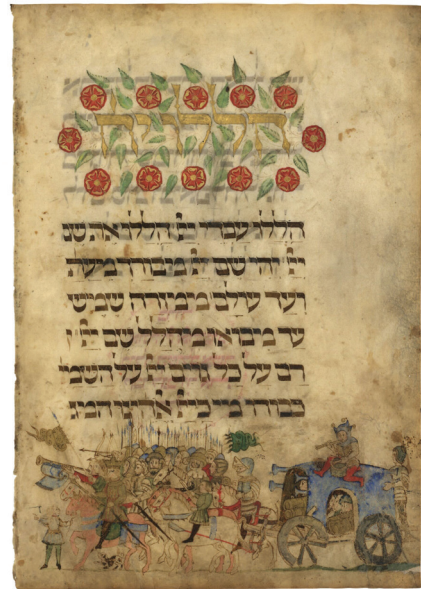 הללויה
הללו עבדי יי הללו את שם
יי יהי שם יי מבורך מעתה
ועד עולם ממזרח שמש
עד מבואו מהלל שם יי
רם על כל גוים יי על השמי
כבודו מי כיי אלהינו המג